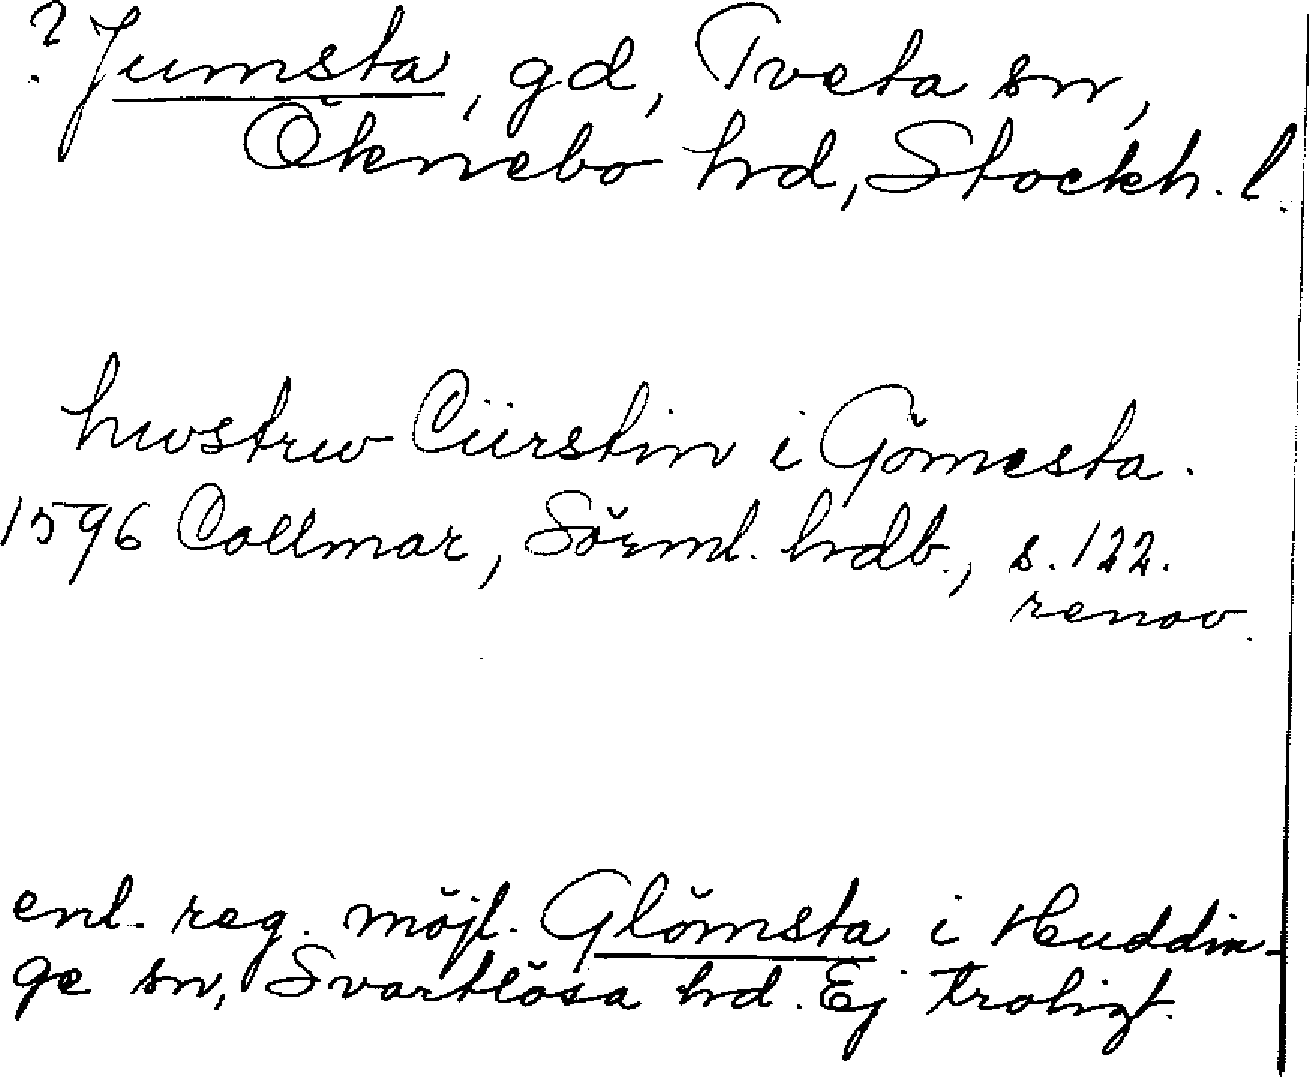 ? Jumsta, gd, Tveta sn,
Öknebo hd, Stockh. l.
hwstrw Ciirstin i Gömesta.
1596 Collmar, Sörml. hdb., s. 122.
renov.
enl. reg. möjl. Glömsta i Huddin-
ge sn, Svartlösa hd. Ej troligt.